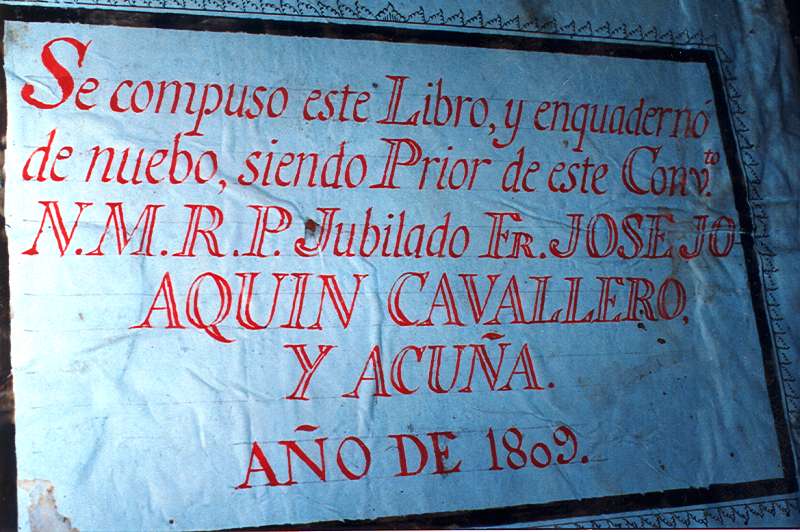 Se compuso este Libro, y enquadernó
de nuebo, siendo Prior de este Conv.to
N.M.R.P. Jubilado Fr. JOSE JO
AQUIN CAVALLERO,
Y ACUÑA.
AÑO DE 1809.